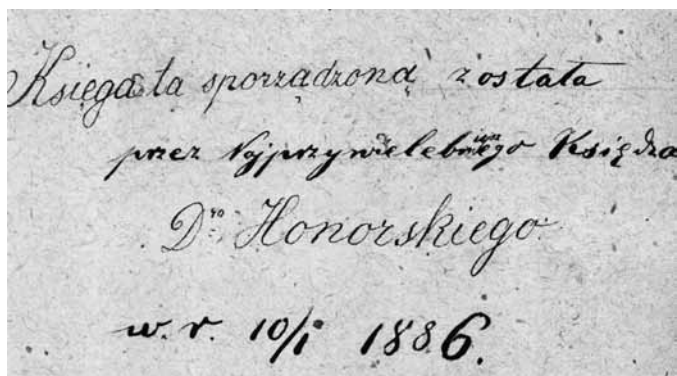 Księga ta sporządzoną została
przez Najprzywielebniejszego Księdza
Dro Honorskiego
w. r. 10/I 1886.